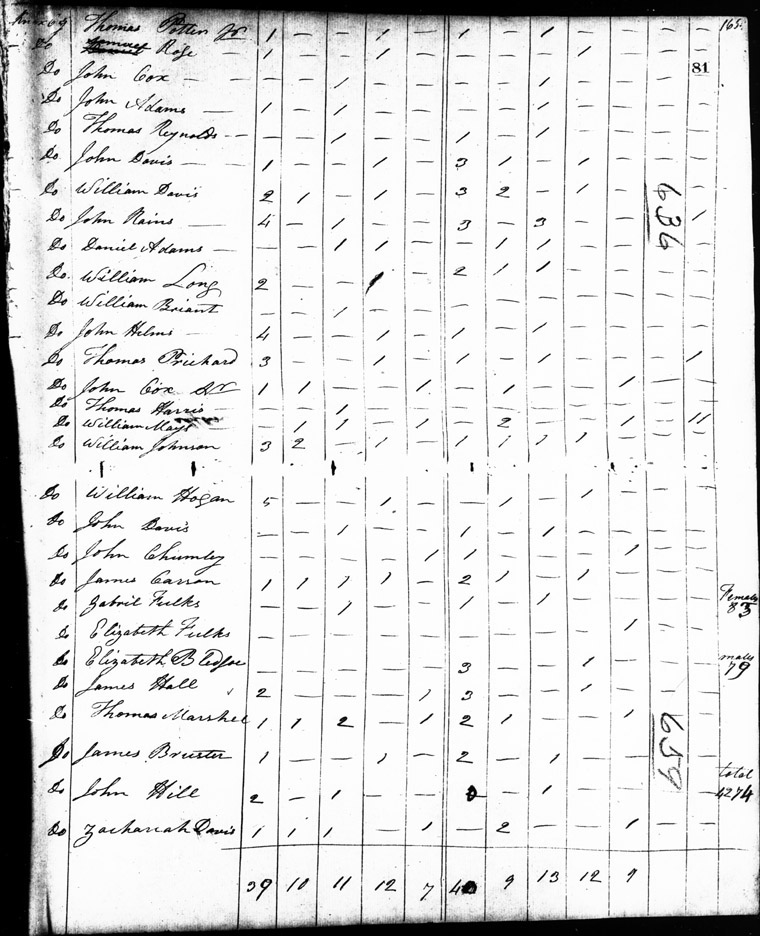 Thomas Potter Jr 1 — — 1 — 1 — 1 — — — — 165
Do Rose 1 — — 1 — 1 — 1 — — — —
81
Do John Cox — — — 1 — — — — 1 — — — —
Do John Adams — 1 — 1 — — — — 1 — — — —
Do Thomas Reynolds — — — 1 — — 1 — 1 — — — —
Do John Davis — 1 — — 1 — 3 1 — 1 — — —
Do William Davis 2 1 — 1 — 3 2 — 1 — — —
636
Do John Rains — 4 — 1 — — 3 — 3 — — — 1
Do Daniel Adams — — — 1 1 — — 1 1 — — — —
Do William Long 2 — — 1 — 2 1 1 — — — —
Do William Briant — — 1 — — — — — — — — —
Do John Helms — 4 — — 1 — 1 — 1 — — — —
Do Thomas Prichard 3 — — 1 — 1 — 1 — — — 1
Do John Cox Sr 1 1 — — 1 — 1 — — 1 — —
Do Thomas Harris — — — 1 — — — — — — — — —
Do William Mays — 1 1 — 1 — 2 — — 1 — 11
Do William Johnson 3 2 — 1 — 1 1 1 1 — — —
Do William Hogan 5 — — 1 — — 1 — 1 — — —
Do John Davis — — 1 — — 1 — 1 — — — —
Do John Chumley — — — — 1 1 — — — 1 — —
Do James Carson 1 1 1 1 — 2 1 — 1 — — —
Do Gabril Fulks — — 1 — — 1 — 1 — — — —
Females
83
Do Elizabeth Fulks — — — — — — — — — 1 — —
Do Elizabeth Bledsoe — — — — — 3 — — 1 — — —
males
79
Do James Hall 2 — — — 1 3 — — 1 — — —
Do Thomas Marshel 1 1 2 — 1 2 1 — — 1 — —
659
Do James Bruster 1 — — 1 — 2 — 1 — — — —
total
4274
Do John Hill 2 — 1 — — — — 1 — — — —
Do Zachariah Davis 1 1 1 — 1 — 2 — — 1 — —
39 10 11 12 7 40 9 13 12 9